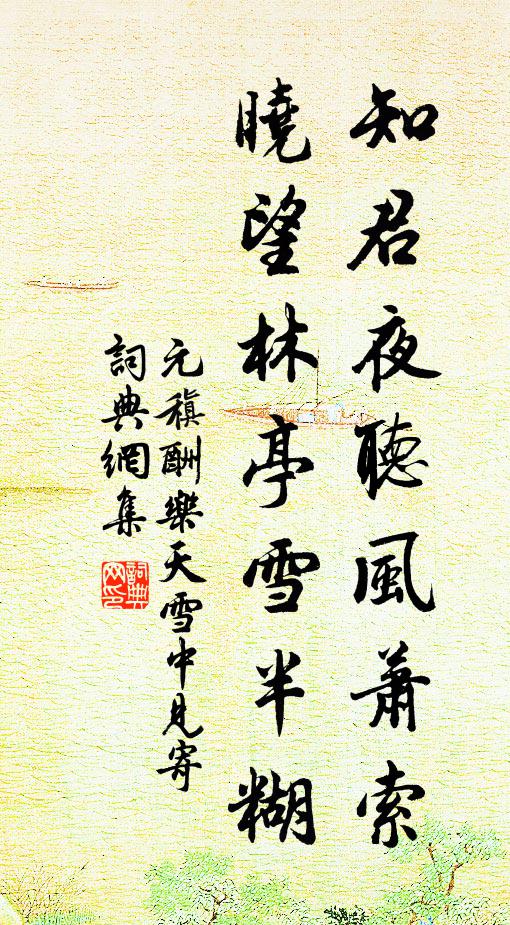 知君夜聽風蕭索
曉望林亭雪半糊
元稹酬樂天雪中見寄
詞典網集
詞典網印